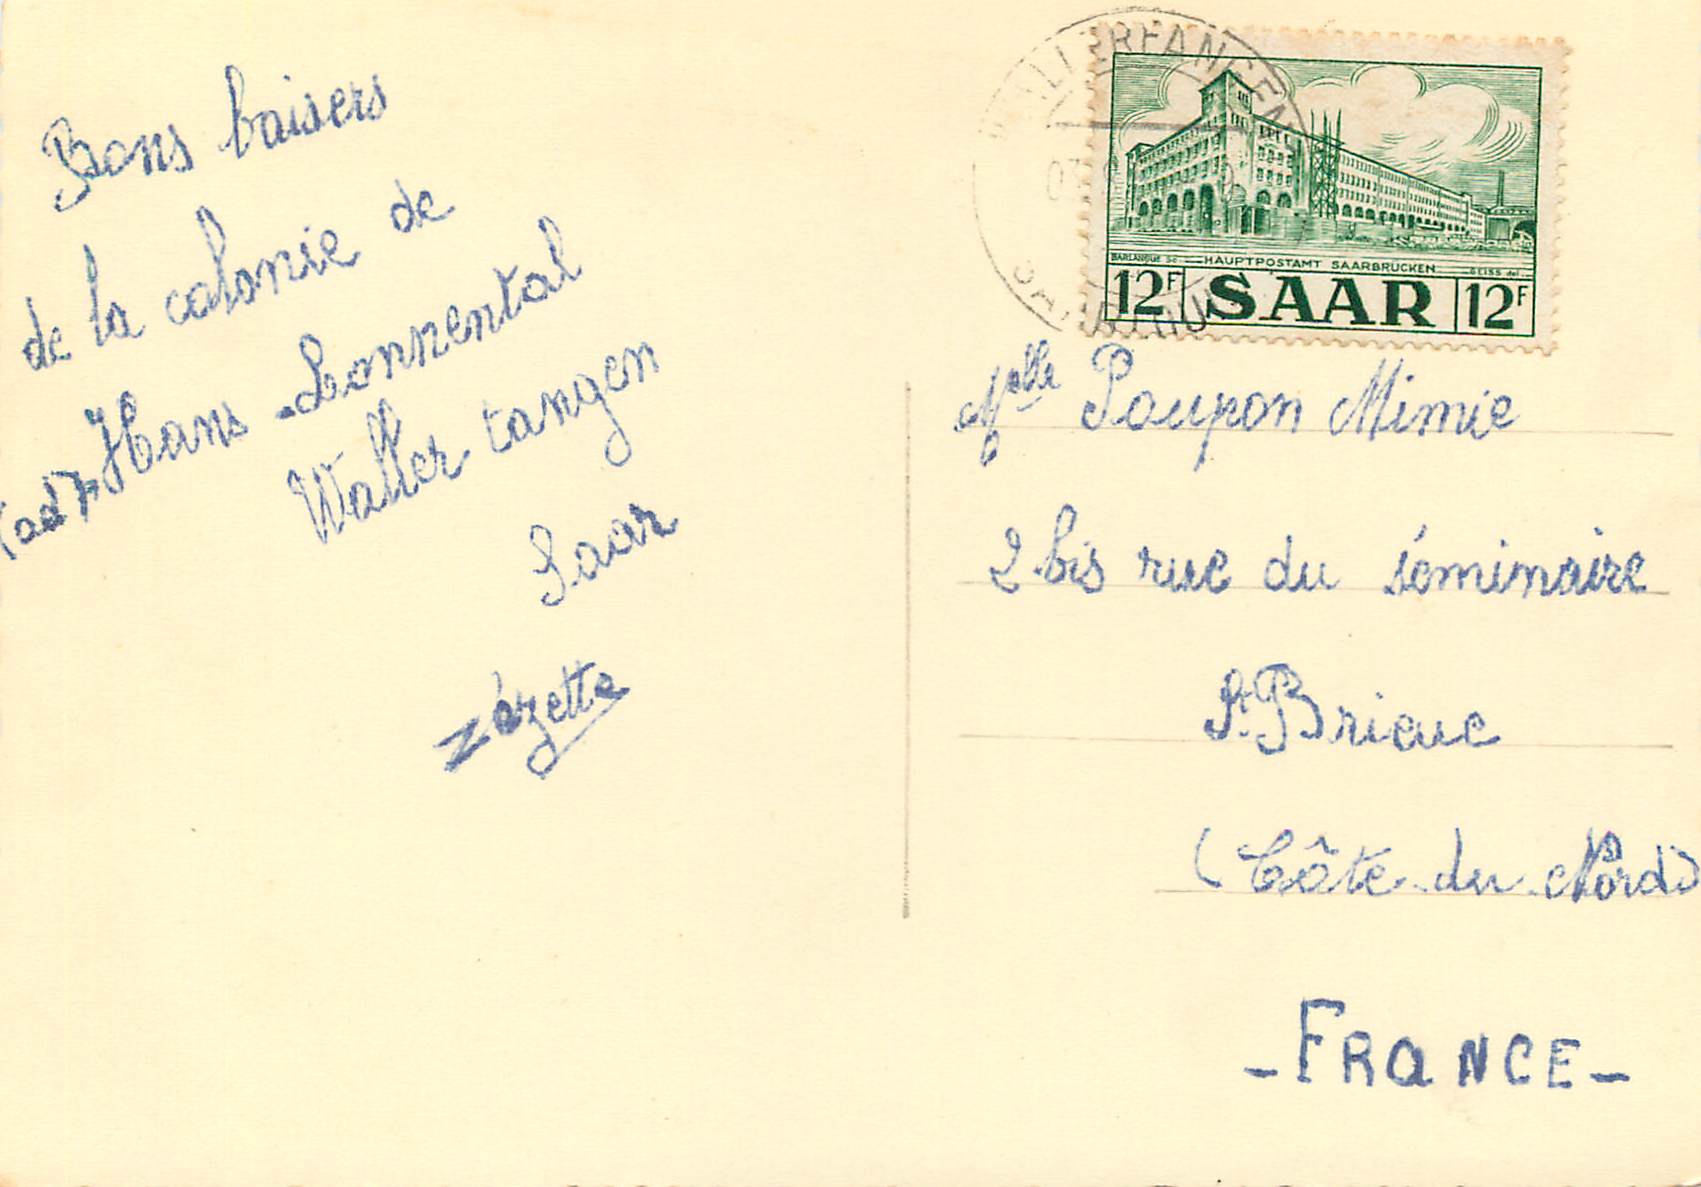 Bons baisers
de la colonie de
(ad) Hans Sonnental
Waller tangen
Saar
Zézette
WALLERFANGEN
SAAR
BARLANGUE SC.
HAUPTPOSTAMT SAARBRÜCKEN
GEISS del.
12F SAAR 12F
Melle Poupon Mimie
2 bis rue du séminaire
St Brieuc
(Côte du Nord)
- FRANCE -